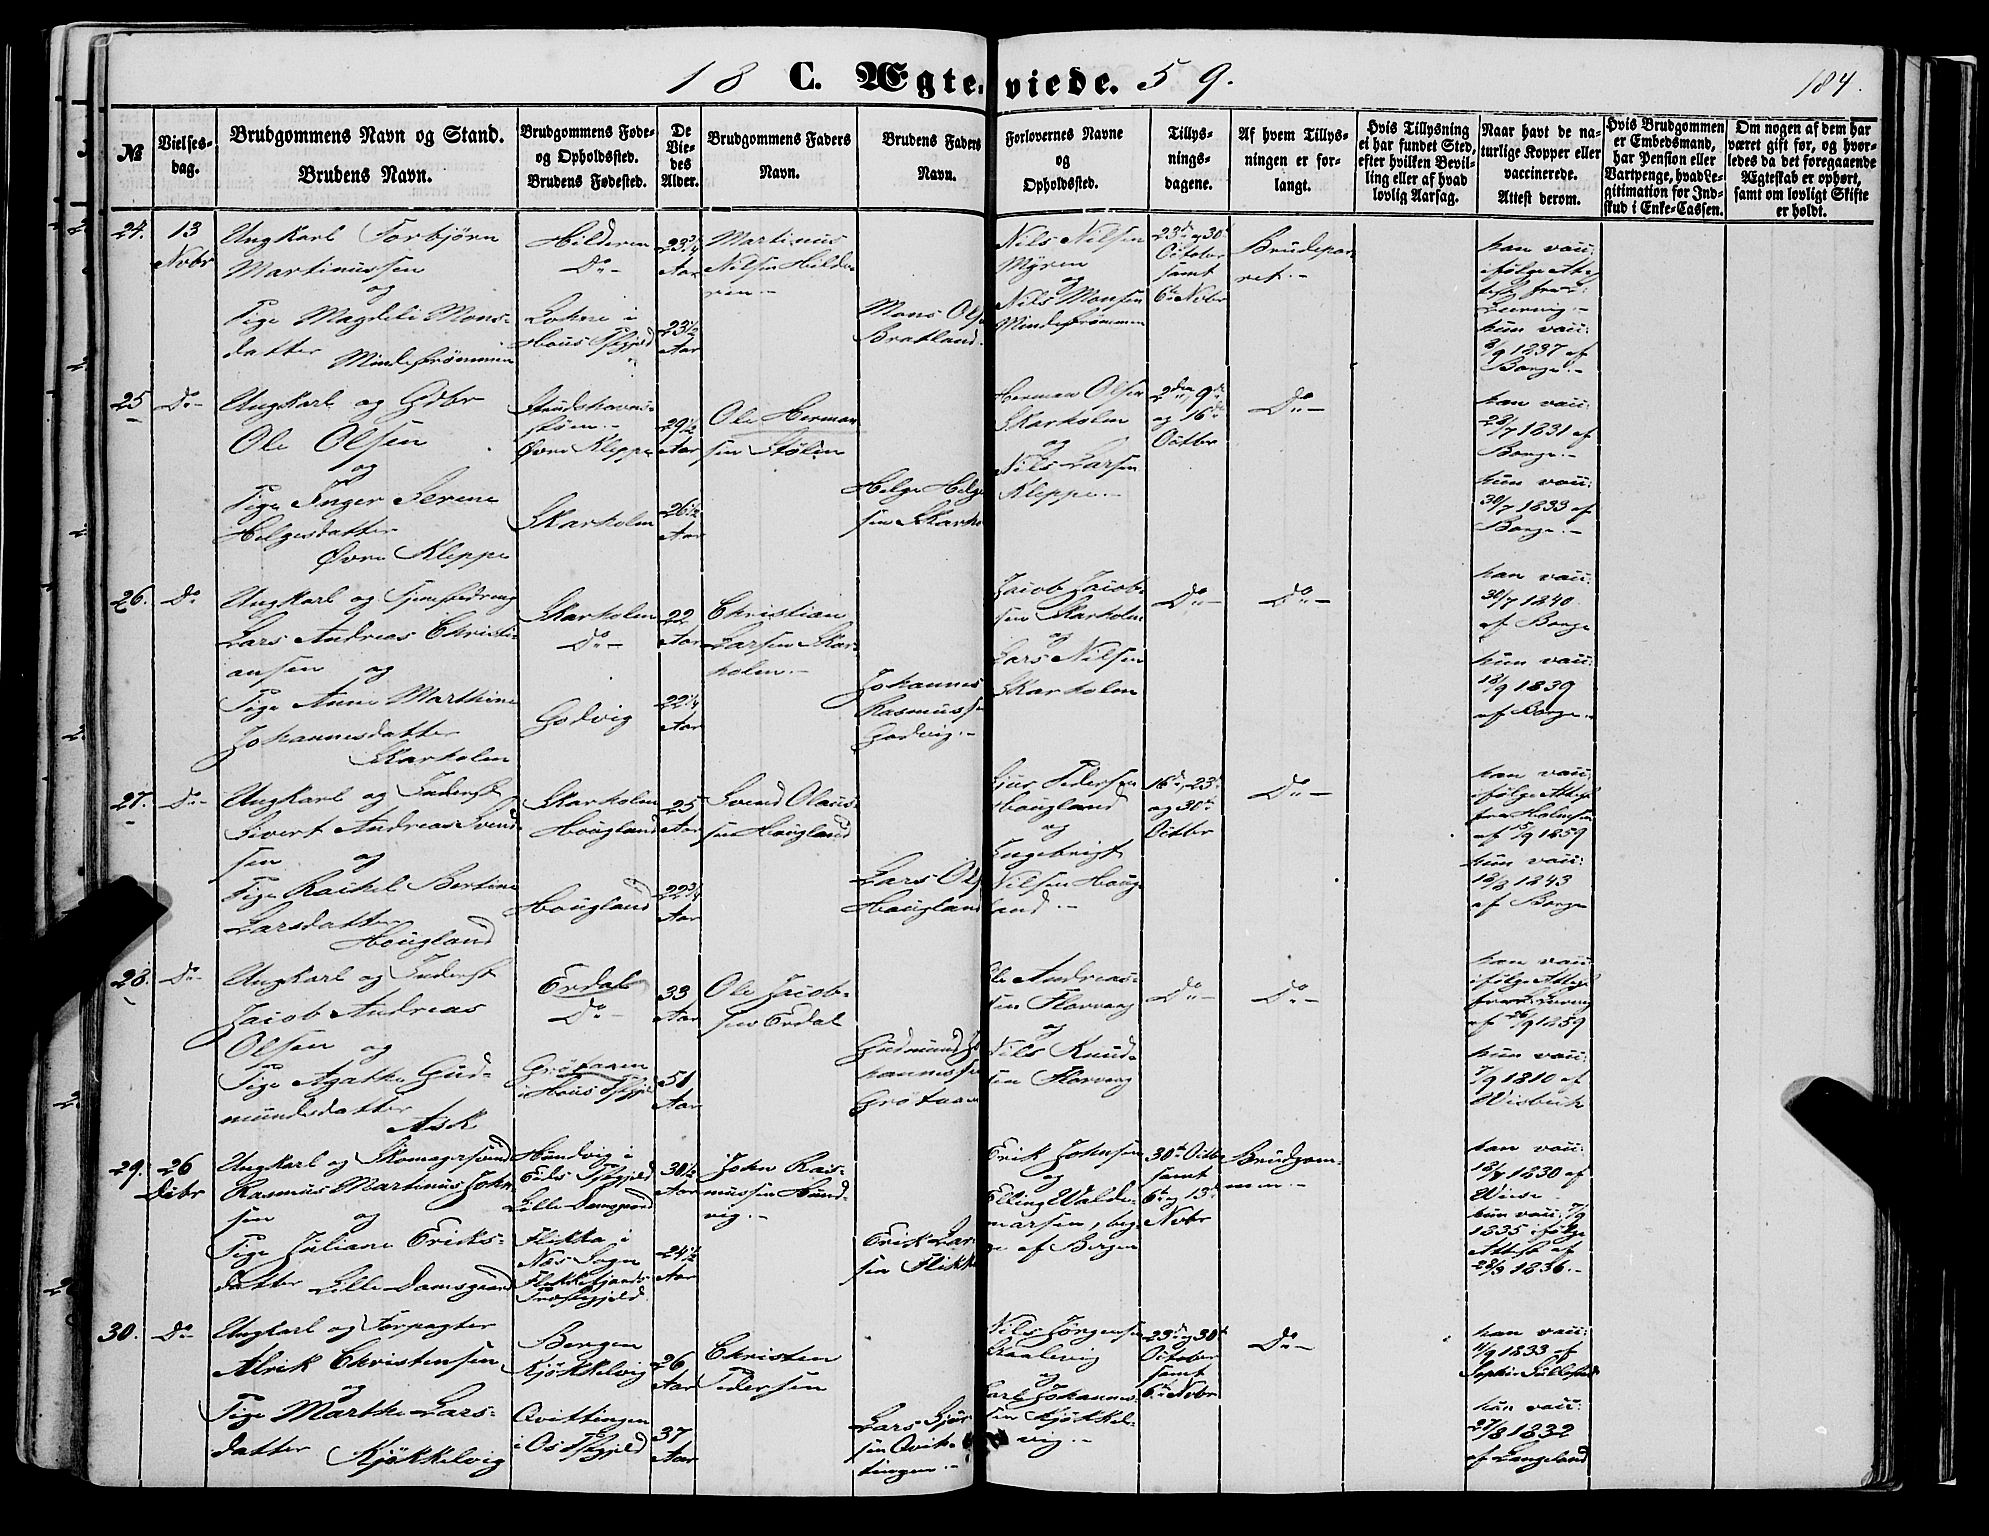 18 C. Ægteviede. 59.
184.
№
Vielses-
dag.
Brudgommens Navn og Stand.
Brudens Navn.
Brudgommens Føde-
og Opholdssted.
Brudens Fødested.
De
Vie-
des
Alder.
Brudgommens Faders
Navn.
Brudens Faders
Navn.
Forlovernes Navne
og
Opholdssted.
Tillys-
nings-
dagene.
Af hvem Tillys-
ningen er for-
langt.
Hvis Tillysning
ei har fundet Sted,
efter hvilken Bevil-
ling eller af hvad
lovlig Aarsag.
Naar havt de na-
turlige Kopper eller
vaccinerede.
Attest derom.
Hvis Brudgommen
er Embedsmand,
har Pension eller
Vartpenge, hvad Le-
gitimation for Ind-
skud i Enke-Cassen.
Om nogen af dem har
været gift før, og hvor-
ledes da det foregaaende
Ægteskab er ophørt,
samt om lovligt Skifte
er holdt.
24.
13
Novbr
Ungkarl Torbjörn
Martinussen
og
Pige Magdeli Mons-
datter Mindeströmmen
Hilderen
Do -
Lohne i
Hous Pgjeld
23 3/4
Aar
23 1/2
Aar
Martinus
Nilsen Hilde-
ren.-
Mons Ols
Bratland.
Nils Nilsen
Myren
og
Nils Monsen
Mindeströmmen
23de og 30te
October
samt
6te Novbr
Brudepar-
ret.-
han vacc:
ifölge Atte
hun vacc:
8/9 1837 af
Borge.-
25
Do -
Ungkarl og Gdbr
Ole Olsen
og
Pige Inger Serene
Helgesdatter
Øvre Kleppe
Øvre Kleppe
Skarholm
29 1/2
Aar
26 1/2
Aar
Ole Herman-
sen Stölen
Helge Helge
sen Skarho
Herman Olsen
Skarholm
og
Nils Larsen
Kleppe.-
2den, 9de
og 16de
Octbr
Do -
han vacc:
28/7 1831 af
Borge.-
hun vacc:
30/7 1833 af
Borge.-
26.
Do
Ungkarl og Tjenestedreng
Lars Andreas Christi-
ansen og
Pige Anne Marthine
Johannesdatter
Skarholm
Skarholm
Do -
Godvig
22
Aar
22 1/4
Aar
Christian
Larsen Skar-
holm.-
Johannes
Rasmusse
Godvig.-
Jacob Jacob-
sen Skarholm
og
Lars Nilsen
Skarholm
Do -
Do -
han vacc:
30/7 1840
af Borge
hun vacc:
18/9 1839
af Borge.-
27.
Do -
Ungkarl og Inderst
Sivert Andreas Svend-
sen og
Pige Rachel Bertine
Larsdatter
Hougland
Skarholm
Hougland
Hougland
25
Aar
22 3/4
Aar
Svend Olaus-
sen Hougland
Lars Ols
Hougland
Sjur Pedersen
Hougland
og
Engebrigt
Nilsen Houg-
land.-
16de, 23de
og 30te
Octbr
Do -
han vacc:
ifölge Attest
fra Holmsen
af 15/9 1859
hun vacc:
18/8 1843
af Borge
28.
Do -
Ungkarl og Inderst
Jacob Andreas
Olsen og
Pige Agathe Gud-
mundsdatter
Ask
Erdal
Do -
Grötaaen
i Hous Pgjeld
33
Aar
51
Aar
Ole Jacob-
sen Erdal
Gudmund Jo
hannesse
Grötaae
Ole Andreas-
sen Florvaag
og
Nils Knud-
sen Florvaag
Do -
Do -
han vacc:
ifölge Attest
af 26/9 1859
hun vacc:
7/9 1810 af
Wisbech
29.
26
Dcbr
Ungkarl og Skomagersvend
Rasmus Martinus John-
sen og
Pige Juliane Eriks-
datter Lille Damsgaard
Hundvig i
Eids Pgjeld
Lille Damsgaard
Flikka i
Næs Sogn
Flekkefjords
Præstegjeld.
30 1/2
Aar
24 1/2
Aar
John Ras-
mussen Hund-
vig.-
Erik Lar-
sen Flikk
Erik Johnsen
og
Elling Walde-
marsen, beg-
ge af Bergen
30te Octbr
samt
6te og 13de
Novbr
Brudgom-
men.-
han vacc:
18/7 1830 af
Wiese
hun vacc: 7/9
1835 ifölge
Attest af
28/9 1836.-
30.
Do -
Ungkarl og Forpagter
Alrik Christensen
og
Pige Marthe Lars-
datter Kjökkelvig
Bergen
Kjökkelvig
Qvittingen
i Os Pgjeld
26
Aar
37
Aar
Christen
Pedersen
Lars Sjur-
sen Qvit-
tingen.-
Nils Jörgensen
og
Carl Johannes-
sen Kjökkel-
vig.-
23de og 30te
October
samt
6te Novbr
Do -
han vacc:
11/9 1833 af
hun vacc:
27/8 1832
af Langeland